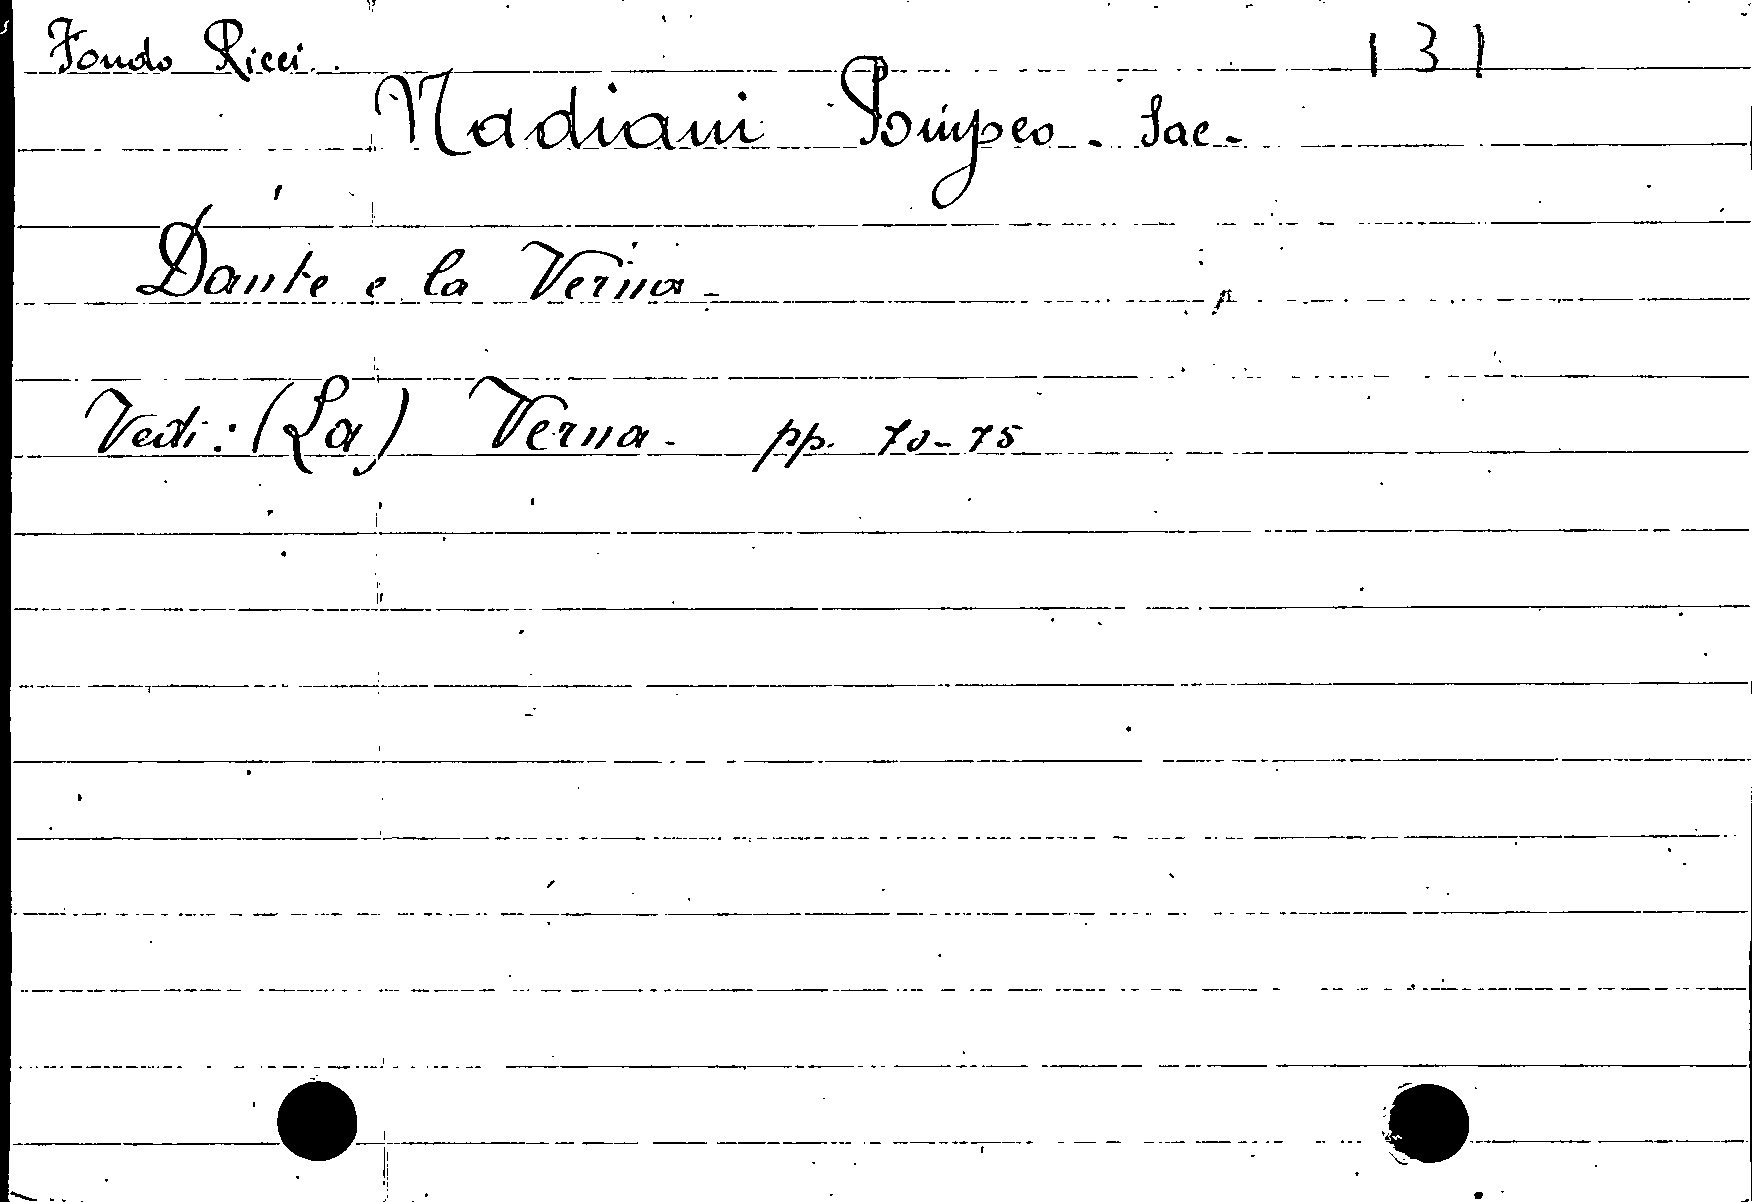 Fondo Ricci. 131
Nadiani Pompeo - Sac -
Dante e la Verna -
Vedi: (La) Verna - pp. 70-75